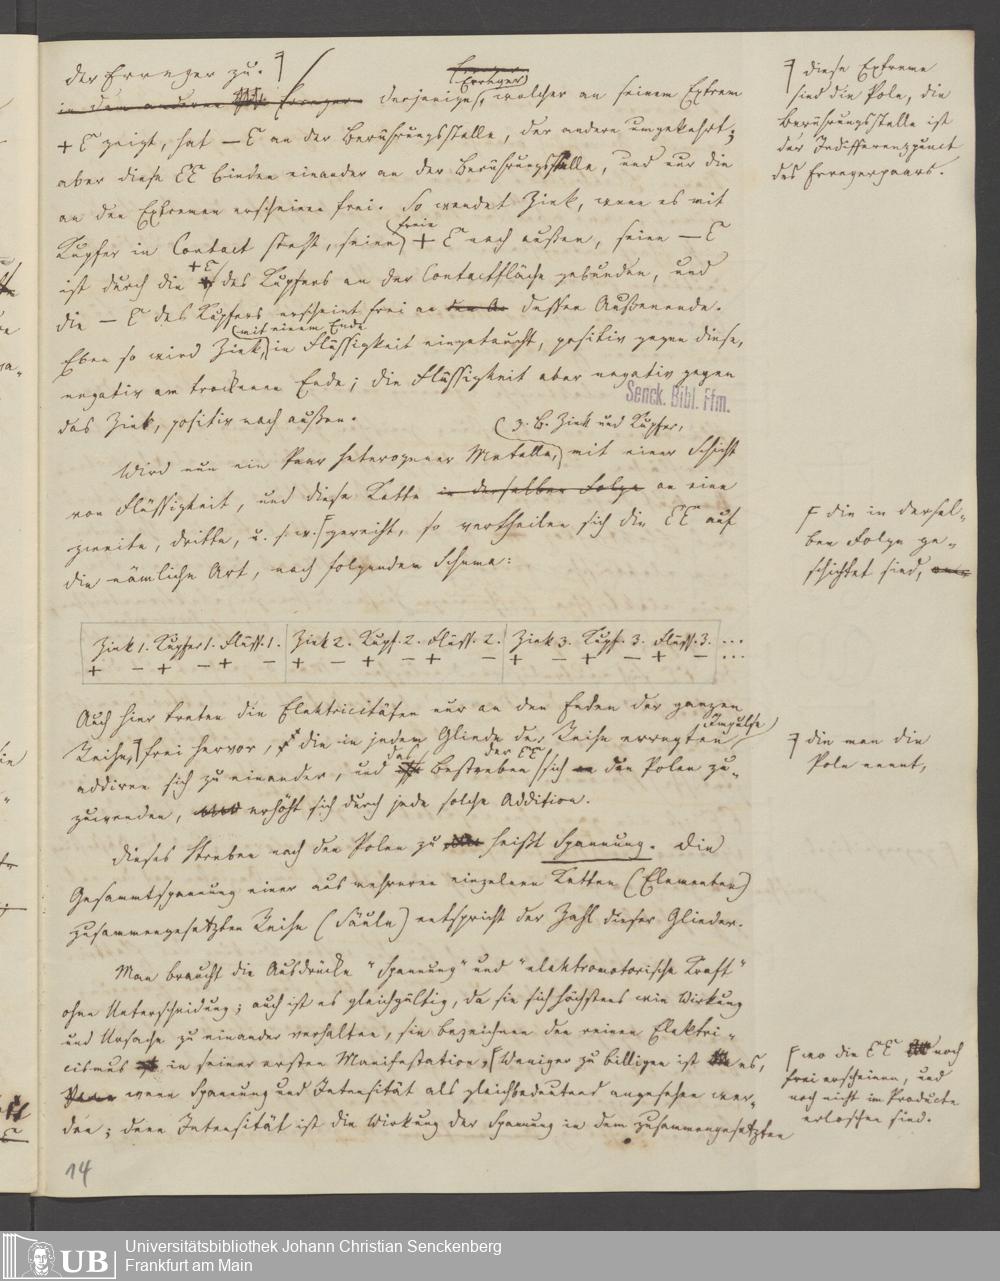 der Erreger zu.
in dem anderen Erreger derjenige, welcher an seinem Extrem
Erreger
+ E zeigt, hat — E an der Berührungsstelle, der andere umgekehrt;
aber diese EE binden einander an der Berührungsstelle, und nur die
an den Extremen erscheinen frei. So wendet Zink, wenn es mit
Kupfer in Contact steht, seine freie + E nach außen, seine — E
ist durch die + E des Kupfers an der Contactfläche gebunden, und
die — E des Kupfers erscheint frei an dessen Außenende.
Eben so wird Zink, mit einem Ende in Flüssigkeit eingetaucht, positiv gegen diese,
negativ am trockenen Ende; die Flüssigkeit aber negativ gegen
das Zink, positiv nach außen.
Senck. Bibl. Ffm.
Wird nun ein Paar heterogener Metalle, z. B. Zink und Kupfer, mit einer Schicht
von Flüssigkeit, und diese Kette in derselben Folge an eine
zweite, dritte, u. s. w. gereiht, so vertheilen sich die EE auf
die nämliche Art, nach folgendem Schema:
Zink 1. Kupfer 1. Flüss. 1. Zink 2. Kupf. 2. Flüss. 2. Zink 3. Kupf. 3. Flüss. 3. ...
+ — + — + — + — + — + — + — + — + — ...
Auch hier treten die Elektricitäten nur an den Enden der ganzen
Reihe, frei hervor, die in jedem Gliede der Reihe erregten Impulse
addiren sich zu einander, und das Bestreben der EE sich den Polen zu-
zuwenden, erhöht sich durch jede solche Addition.
Dieses Streben nach den Polen zu heißt Spannung. Die
Gesammtspannung einer aus mehreren einzelnen Ketten (Elementen)
zusammengesetzten Reihe (Säule) entspricht der Zahl dieser Glieder.
Man braucht die Ausdrücke "Spannung" und "elektromotorische Kraft"
ohne Unterscheidung; auch ist es gleichgültig, da sie sich höchstens wie Wirkung
und Ursache zu einander verhalten, sie bezeichnen den reinen Elektri-
cismus in seiner ersten Manifestation, Weniger zu billigen ist es,
wenn Spannung und Intensität als gleichbedeutend angesehen wer-
den; denn Intensität ist die Wirkung der Spannung in dem zusammengesetzten
14
diese Extreme
sind die Pole, die
Berührungsstelle ist
der Indifferenzpunct
des Erregerpaars.
die in dersel-
ben Folge ge-
schichtet sind,
die man die
Pole nennt,
wo die EE noch
frei erscheinen, und
noch nicht im Producte
erloschen sind.
UB
Universitätsbibliothek Johann Christian Senckenberg
Frankfurt am Main